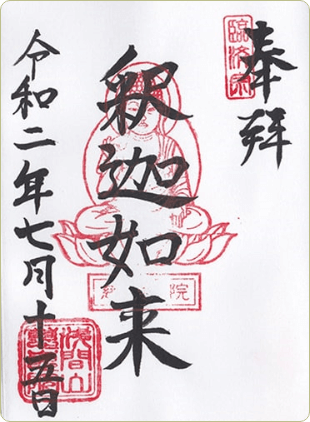 奉拝
臨済宗
釈迦如来
院
令和二年七月十五日
浅間山